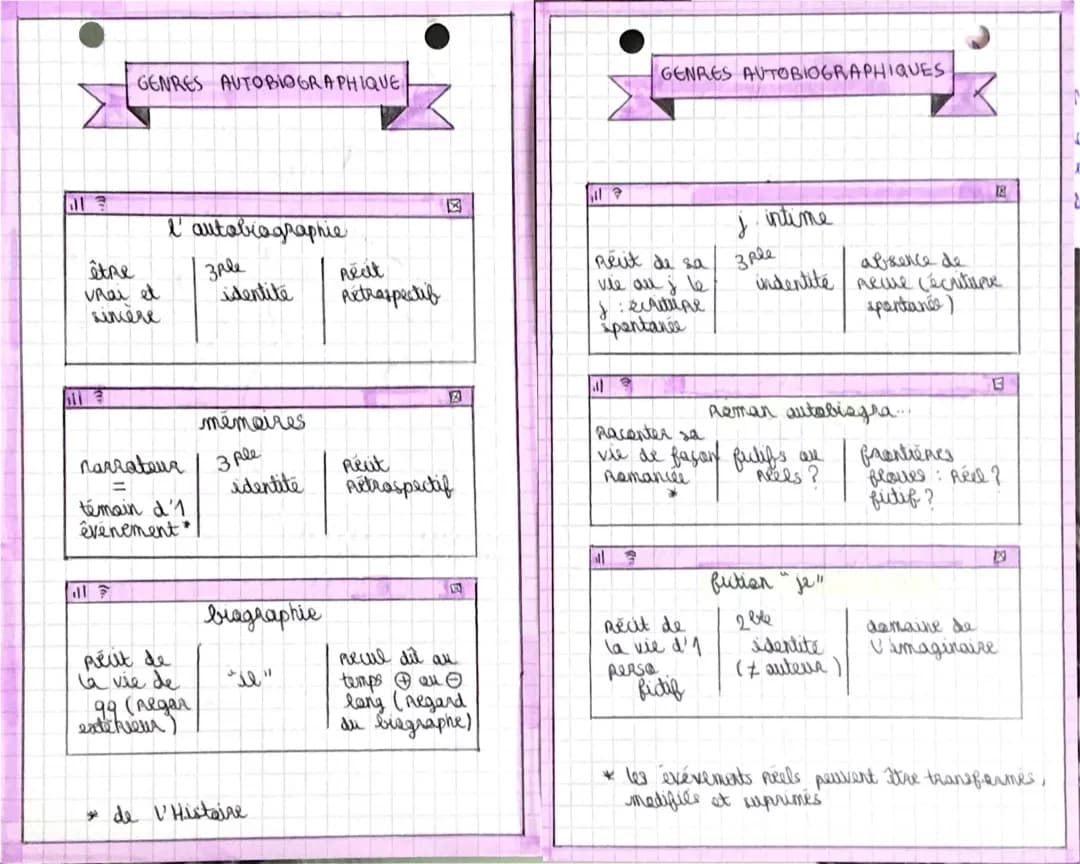 GENRES AUTOBIOGRAPHIQUE
l'autobiographie
être
vrai et
sincère
3ple
identité
Récit
Rétrospectif
mémoires
narrateur
=
témoin d'1
événement*
3ple
identité
Récit
Rétrospectif
biographie
Récit de
la vie de
qq (regar
extérieur)
"il"
recul dû au
temps ⊕ ou ⊖
long (regard
du biographe)
* de l'Histoire
GENRES AUTOBIOGRAPHIQUES
j. intime
Récit de sa
vie au j le
j : écriture
spontanée
3ple
indentité
absence de
recul (écriture
spontanée)
Roman autobiogra...
Raconter sa
vie de façon
Romancée
*
fictifs ou
réels ?
frontières
floues : Réel ?
fictif ?
fiction "je"
Récit de
la vie d'1
perso
fictif
2ble
identité
(≠ auteur)
domaine de
l'imaginaire
* les événements réels peuvent être transformés,
modifiés et suprimés